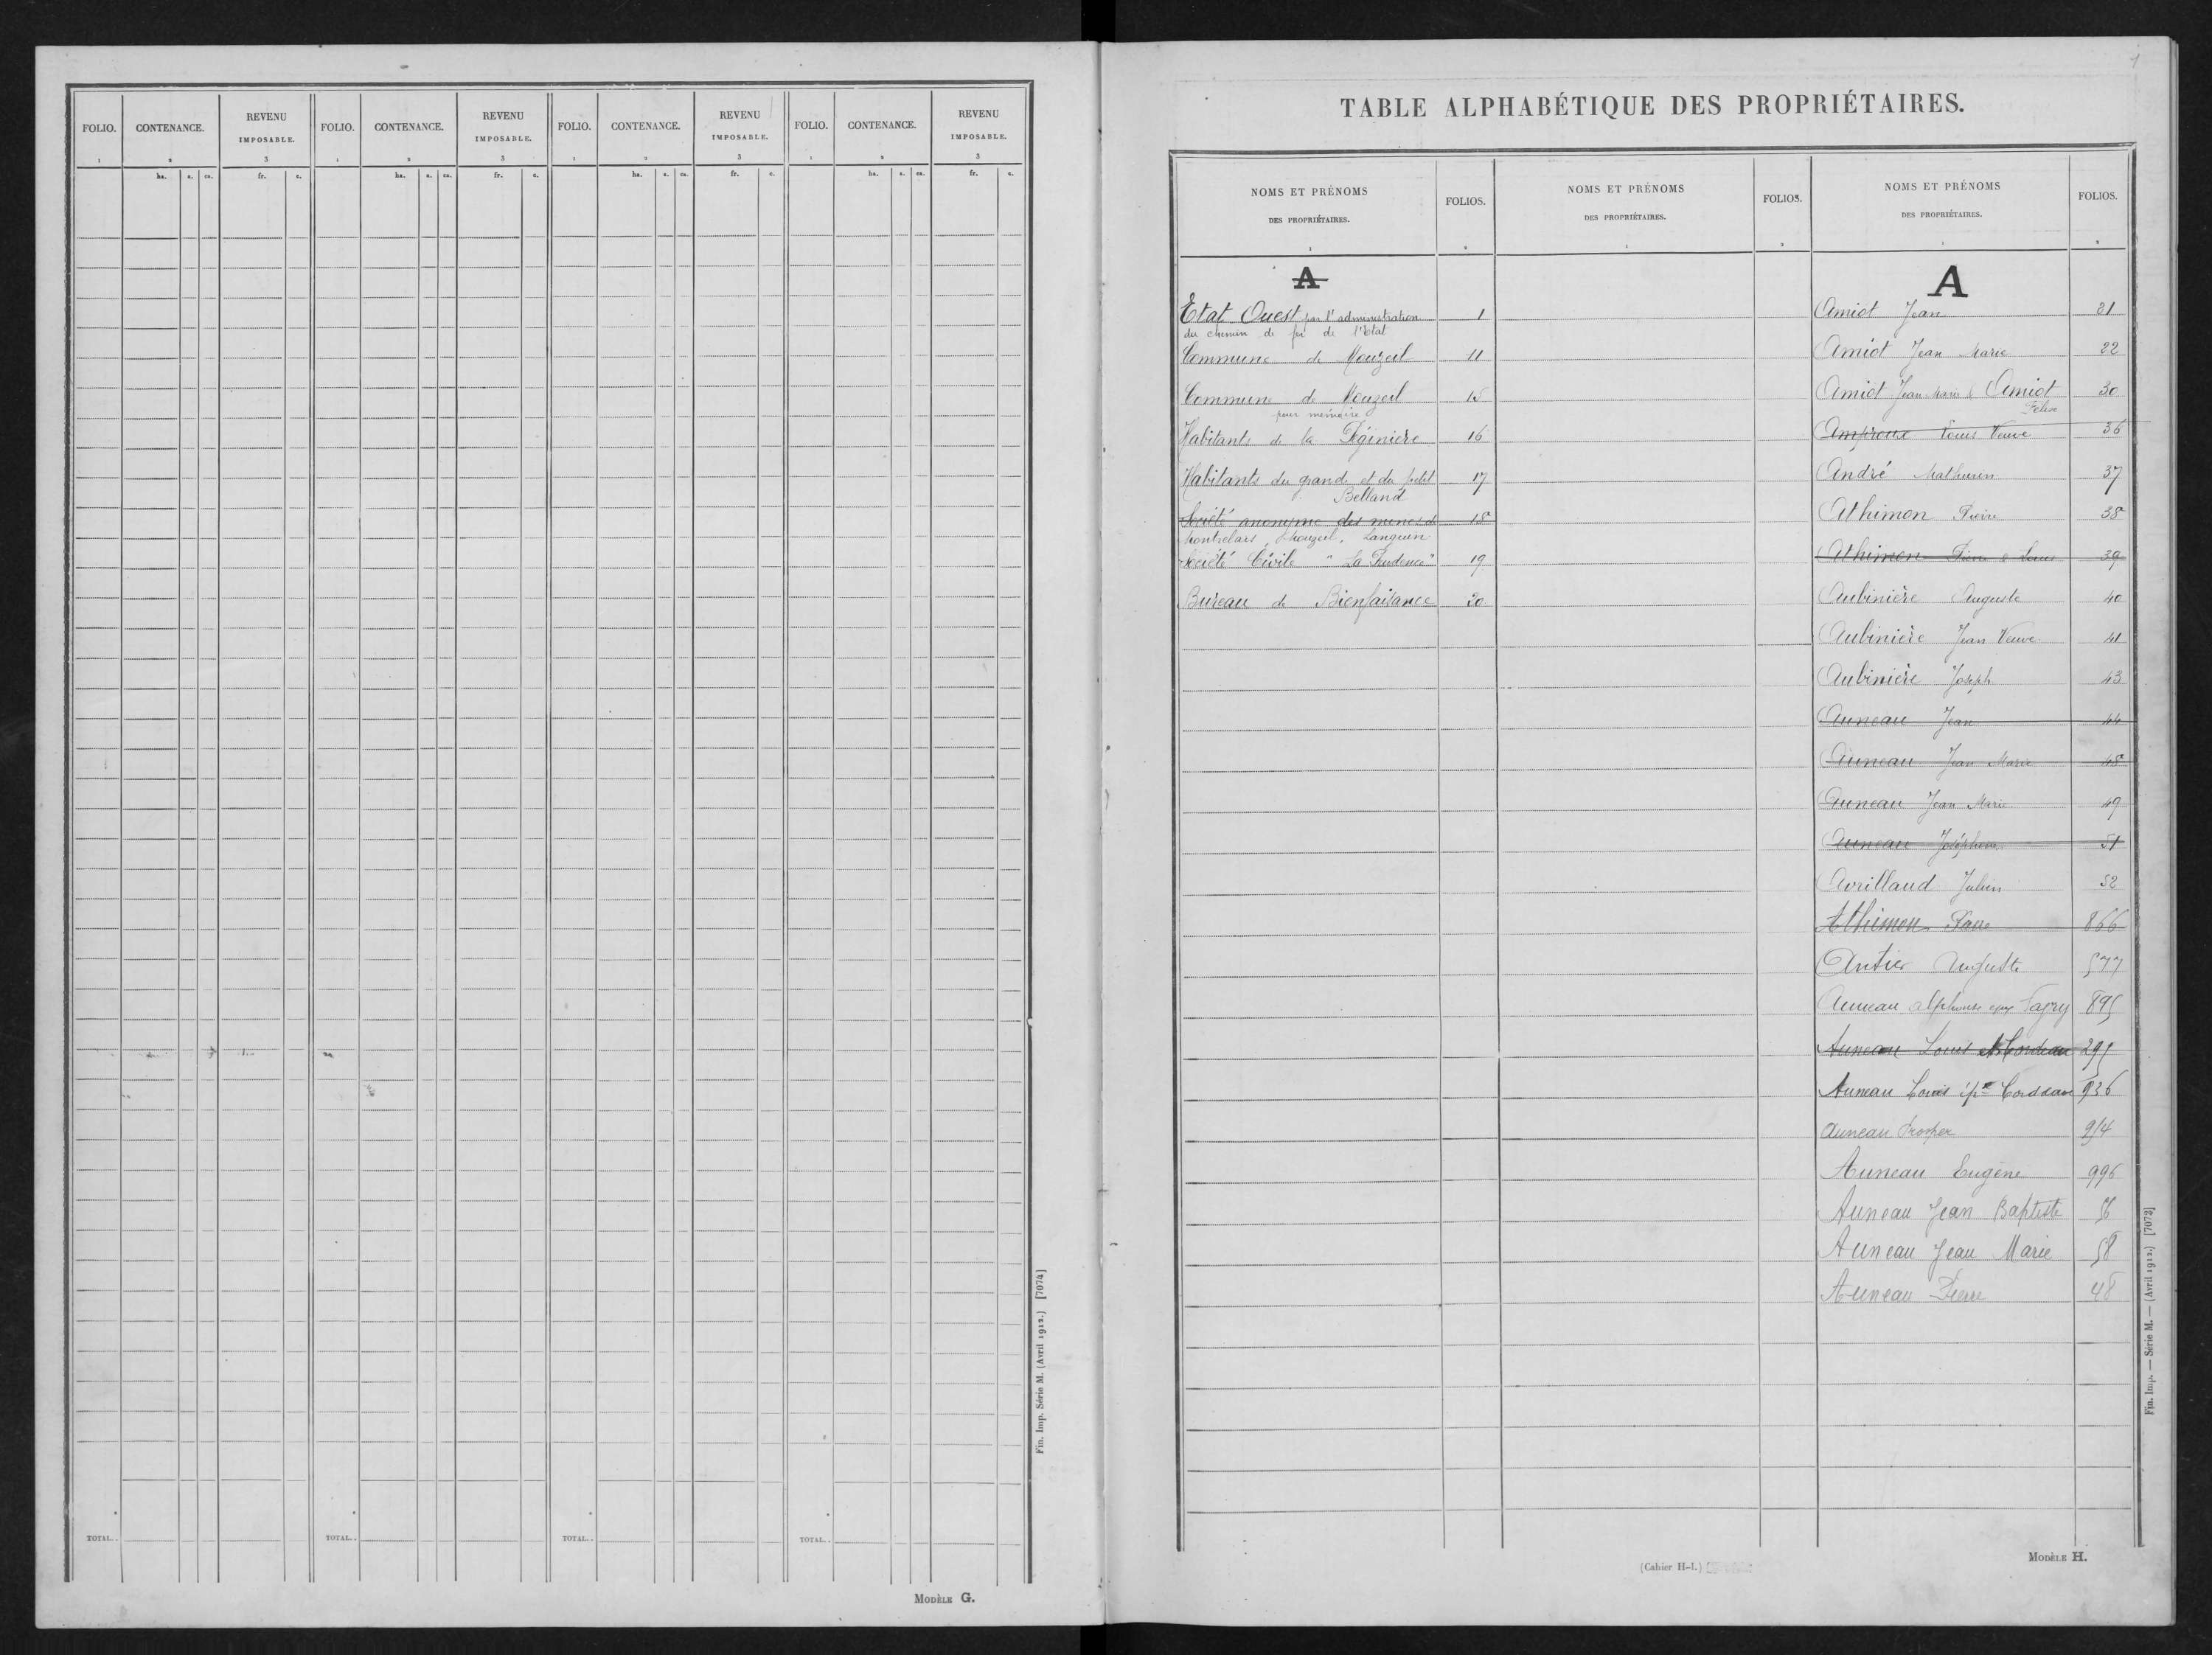 FOLIO. CONTENANCE. REVENU IMPOSABLE. FOLIO. CONTENANCE. REVENU IMPOSABLE. FOLIO. CONTENANCE. REVENU IMPOSABLE. FOLIO. CONTENANCE. REVENU IMPOSABLE.
1 2 3 1 2 3 1 2 3 1 2 3
ha. a. ca. fr. c. ha. a. ca. fr. c. ha. a. ca. fr. c. ha. a. ca. fr. c.
TOTAL.. TOTAL.. TOTAL.. TOTAL..
Fin. Imp. Série M. (Avril 1912.) [7074]
MODÈLE G.
1
TABLE ALPHABÉTIQUE DES PROPRIÉTAIRES.
NOMS ET PRÉNOMS DES PROPRIÉTAIRES. FOLIOS. NOMS ET PRÉNOMS DES PROPRIÉTAIRES. FOLIOS. NOMS ET PRÉNOMS DES PROPRIÉTAIRES. FOLIOS.
1 2 1 2 1 2
A
Etat Ouest par l'administration 1
du chemin de fer de l'Etat
Commune de Mouzeil 11
Commune de Mouzeil 15
pour mémoire
Habitants de la Féginière 16
Habitants du grand et du petit 17
Belland
Société anonyme des mines de 18
Montrelais, Mouzeil, Languin
Société Civile "La Prudence" 19
Bureau de Bienfaisance 20
A
Amiot Jean 21
Amiot Jean Marie 22
Amiot Jean Marie & Amiot 30
Amproux Louis Veuve 36
André Mathurin 37
Athimon Pierre 38
Athimon Pierre & Louis 39
Aubinière Auguste 40
Aubinière Jean Veuve 41
Aubinière Joseph 43
Auneau Jean 44
Auneau Jean Marie 48
Auneau Jean Marie 49
Auneau Joséphine 51
Avrillaud Julien 52
Athimon Pierre 866
Antier Auguste 577
Auneau Alphonse 895
Auneau Louis Cordeau 295
Auneau Louis épx Cordeau 936
Auneau Prosper 954
Auneau Eugène 996
Auneau Jean Baptiste 56
Auneau Jean Marie 58
Auneau Pierre 48
Fin. Imp. — Série M. — (Avril 1912.) [7072]
(Cahier H-I.)
MODÈLE H.